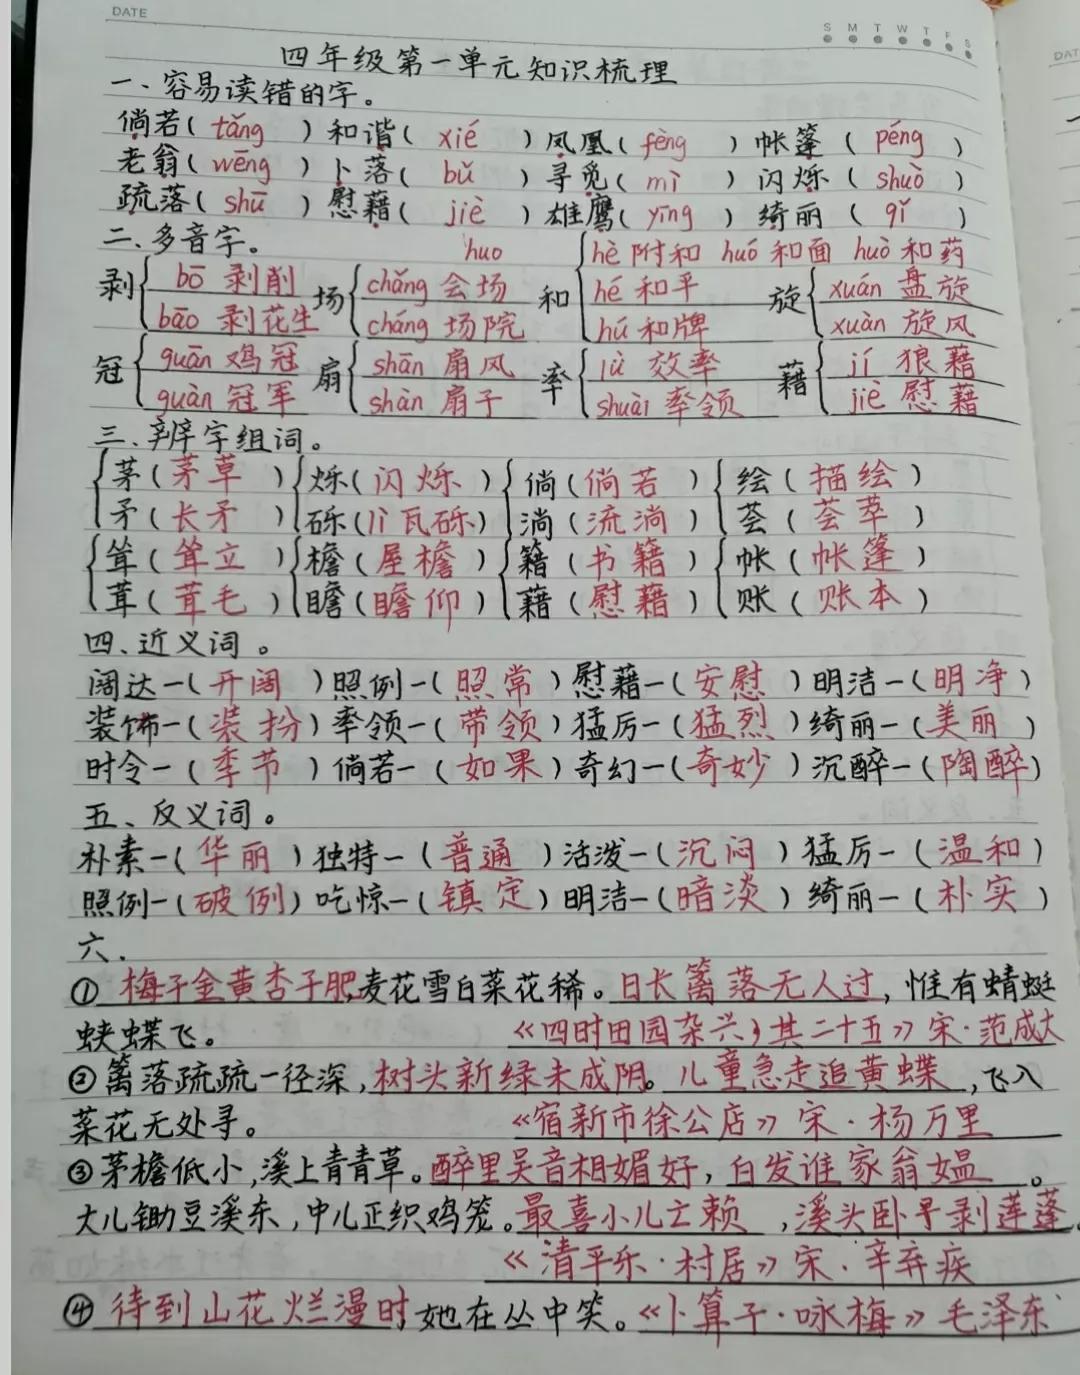 DATE
S M T W T F S
四年级第一单元知识梳理
一、容易读错的字。
倘若(tǎng) 和谐(xié) 凤凰(fèng) 帐篷(péng)
老翁(wēng) 卜落(bǔ) 寻觅(mì) 闪烁(shuò)
疏落(shū) 慰藉(jiè) 雄鹰(yīng) 绮丽(qǐ)
二、多音字。
huo
剥{bō 剥削 bāo 剥花生 场{chǎng 会场 cháng 场院 和{hè 附和 huó 和面 huò 和药 hé 和平 hú 和牌 旋{xuán 盘旋 xuàn 旋风
冠{guān 鸡冠 guàn 冠军 扇{shān 扇风 shàn 扇子 率{lǜ 效率 shuài 率领 藉{jí 狼藉 jiè 慰藉
三、辨字组词。
{茅(茅草) {烁(闪烁) {倘(倘若) {绘(描绘)
矛(长矛) 砾(瓦砾) 淌(流淌) 荟(荟萃)
{耸(耸立) {檐(屋檐) {籍(书籍) {帐(帐篷)
茸(茸毛) 瞻(瞻仰) 藉(慰藉) 账(账本)
四、近义词。
阔达—(开阔) 照例—(照常) 慰藉—(安慰) 明洁—(明净)
装饰—(装扮) 率领—(带领) 猛厉—(猛烈) 绮丽—(美丽)
时令—(季节) 倘若—(如果) 奇幻—(奇妙) 沉醉—(陶醉)
五、反义词。
朴素—(华丽) 独特—(普通) 活泼—(沉闷) 猛厉—(温和)
照例—(破例) 吃惊—(镇定) 明洁—(暗淡) 绮丽—(朴实)
六、
① 梅子金黄杏子肥,麦花雪白菜花稀。日长篱落无人过,惟有蜻蜓
蛱蝶飞。 《四时田园杂兴》其二十五》宋·范成大
②篱落疏疏一径深,树头新绿未成阴。儿童急走追黄蝶,飞入
菜花无处寻。 《宿新市徐公店》宋·杨万里
③茅檐低小,溪上青青草。醉里吴音相媚好,白发谁家翁媪。
大儿锄豆溪东,中儿正织鸡笼。最喜小儿亡赖,溪头卧予剥莲蓬。
《清平乐·村居》宋·辛弃疾
④待到山花烂漫时她在丛中笑。《卜算子·咏梅》毛泽东